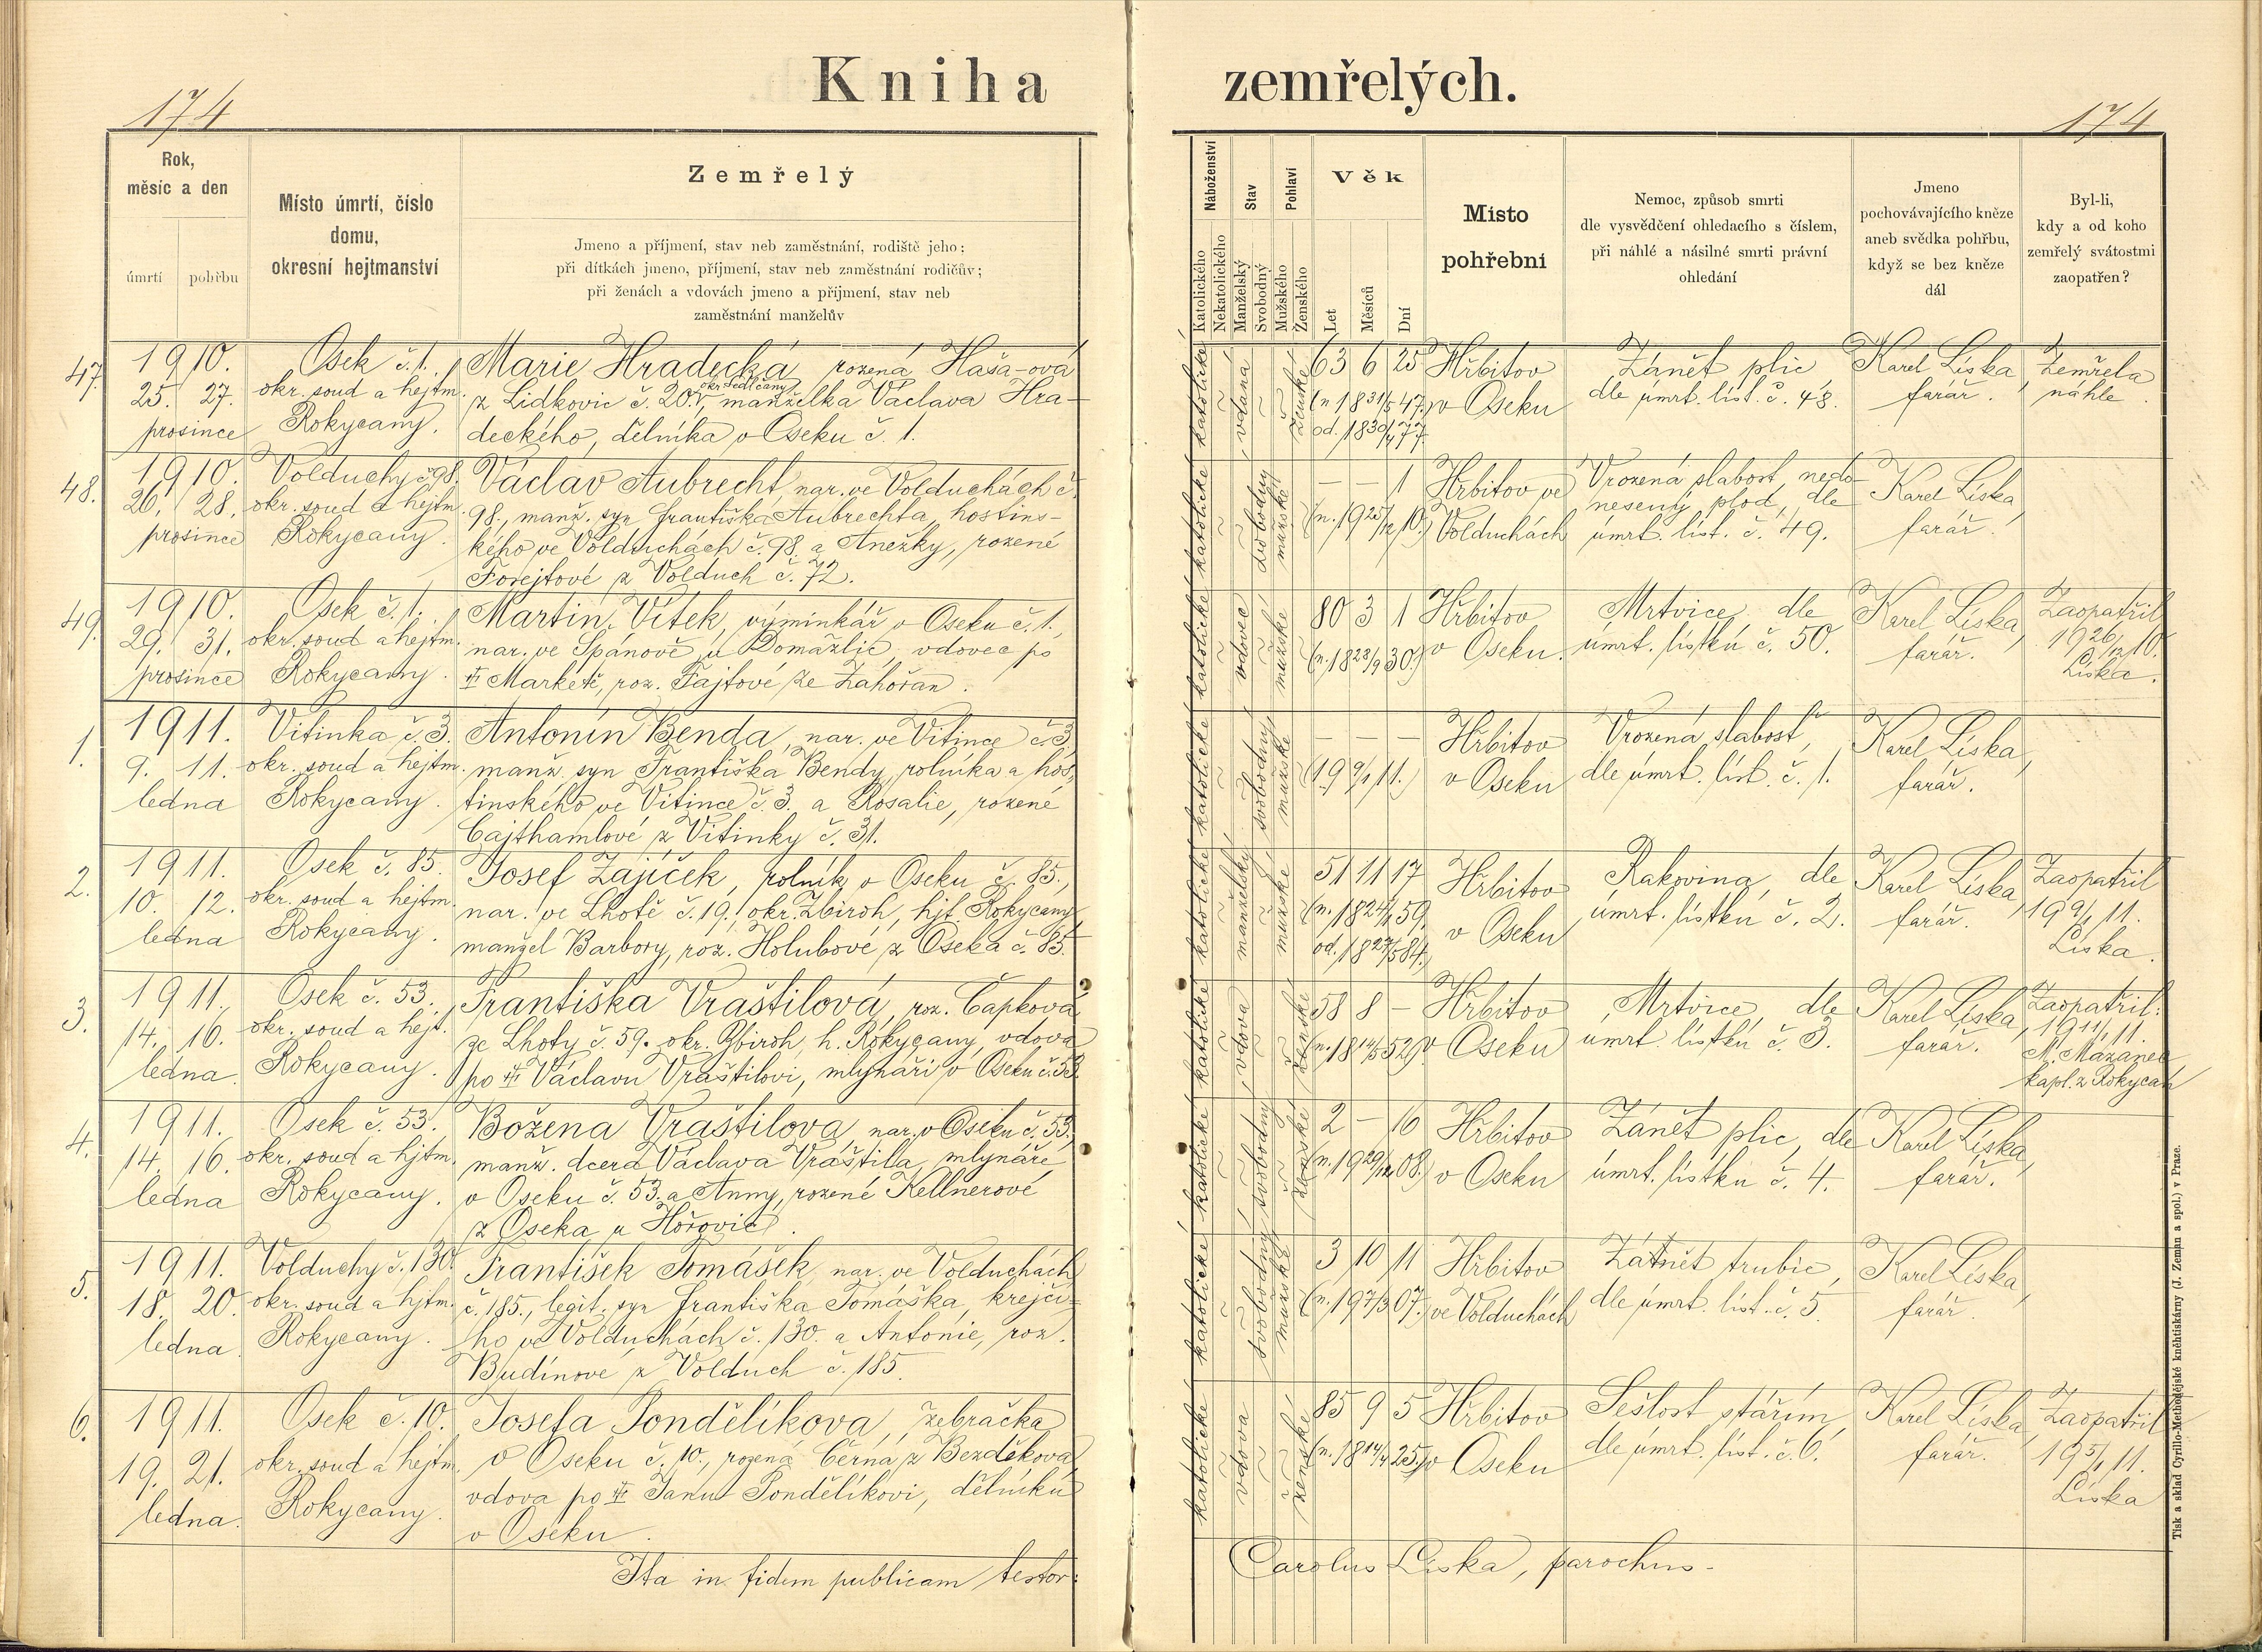 Kniha zemřelých.
174
174
Rok, měsíc a den
úmrtí
pohřbu
Místo úmrtí, číslo domu, okresní hejtmanství
Zemřelý
Jmeno a příjmení, stav neb zaměstnání, rodiště jeho;
při dítkách jmeno, příjmení, stav neb zaměstnání rodičův;
při ženách a vdovách jmeno a příjmení, stav neb
zaměstnání manželův
Náboženství
Katolického
Nekatolického
Stav
Manželský
Svobodný
Pohlaví
Mužského
Ženského
Věk
Let
Měsíců
Dní
Misto pohřební
Nemoc, způsob smrti
dle vysvědčení ohledacího s číslem,
při náhlé a násilné smrti právní
ohledání
Jmeno
pochovávajícího kněze
aneb svědka pohřbu,
když se bez kněze
dál
Byl-li,
kdy a od koho
zemřelý svátostmi
zaopatřen?
47.
1910.
25. 27.
prosince
Osek č. 1.
okr. soud a hejtm.
Rokycany.
Marie Hradecká, rozená Haša-ová
okr. Sedlčany
z Lidkovic č. 20., manželka Václava Hra-
deckého, dělníka v Oseku č. 1.
katolické
vdaná
ženské
63 6 25
(n. 18 31/5 47.)
od. 18 30/4 77.
Hřbitov
v Oseku
Zánět plic
dle úmrt. líst. č. 48.
Karel Líska,
farář.
Zemřela
náhle.
48.
1910.
26. 28.
prosince
Volduchy č. 98.
okr. soud a hejtm.
Rokycany.
Václav Aubrecht, nar. ve Volduchách č.
98., manž. syn Františka Aubrechta, hostins-
kého ve Volduchách č. 98. a Anežky, rozené
Forejtové z Volduch č. 72.
katolické
svobodný
mužské
— — 1
(n. 19 25/12 10.)
Hřbitov ve
Volduchách
Vrozená slabost, nedo-
nesený plod, dle
úmrt. líst. č. 49.
Karel Líska,
farář.
49.
1910.
29. 31.
prosince
Osek č. 1.
okr. soud a hejtm.
Rokycany.
Martin Vítek, výminkář v Oseku č. 1.,
nar. ve Spánově u Domažlic, vdovec po
Markétě, roz. Fajtové ze Zahořan.
katolické
vdovec
mužské
80 3 1
(n. 18 28/9 30.)
Hřbitov
v Oseku.
Mrtvice, dle
úmrt. lístku č. 50.
Karel Líska,
farář.
Zaopatřil
19 26/12 10.
Líska.
1.
1911.
9. 11.
ledna
Vitinka č. 3.
okr. soud a hejtm.
Rokycany.
Antonín Benda, nar. ve Vitince č. 3,
manž. syn Františka Bendy, rolníka a hos-
tinského ve Vitince č. 3. a Rosalie, rozené
Cajthamlové z Vitinky č. 31.
katolické
svobodný
mužské
— — —
(19 9/1 11.)
Hřbitov
v Oseku
Vrozená slabost,
dle úmrt. líst. č. 1.
Karel Líska,
farář.
2.
1911.
10. 12.
ledna
Osek č. 85.
okr. soud a hejtm.
Rokycany.
Josef Zajíček, rolník v Oseku č. 85.,
nar. ve Lhotě č. 19. okr. Zbiroh, hjt. Rokycany
manžel Barbory, roz. Holubové z Oseka č. 85.
katolické
manželský
mužské
51 11 17
(n. 18 24/1 59.
od. 18 27/5 84.)
Hřbitov
v Oseku
Rakovina, dle
úmrt. lístku č. 2.
Karel Líska,
farář.
Zaopatřil
19 9/1 11.
Líska.
3.
1911.
14. 16.
ledna
Osek č. 53.
okr. soud a hejt.
Rokycany.
Františka Vraštilová, roz. Čapková
ze Lhoty č. 59. okr. Zbiroh, h. Rokycany, vdova
po Václavu Vraštilovi, mlynáři v Oseku č. 53.
katolické
vdova
ženské
58 8 —
(n. 18 14/5 52.)
Hřbitov
v Oseku
Mrtvice, dle
úmrt. lístku č. 3.
Karel Líska,
farář.
Zaopatřil:
19 11/1 11.
M. Mazanec
kapl. z Rokycan
4.
1911.
14. 16.
ledna
Osek č. 53.
okr. soud a hjtm.
Rokycany.
Božena Vraštilova, nar. v Oseku č. 53.
manž. dcera Václava Vraštila, mlynáře
v Oseku č. 53. a Anny, rozené Kellnerové
z Oseka u Hořovic.
katolické
svobodný
ženské
2 — 16
(n. 19 29/12 08.)
Hřbitov
v Oseku
Zánět plic, dle
úmrt. lístku č. 4.
Karel Líska,
farář.
5.
1911.
18. 20.
ledna
Volduchy č. 130.
okr. soud a hjtm.
Rokycany.
František Tomášek, nar. ve Volduchách
č. 185., legit. syn Františka Tomáška, krejčí-
ho ve Volduchách č. 130. a Antonie, roz.
Budínové z Volduch č. 185.
katolické
svobodný
mužské
3 10 11
(n. 19 7/3 07.)
Hřbitov
ve Volduchách
Zánět trubic,
dle úmrt. líst. č. 5.
Karel Líska,
farář.
6.
1911.
19. 21.
ledna.
Osek č. 10.
okr. soud a hejtm.
Rokycany.
Josefa Pondělíkova, žebračka
v Oseku č. 10., rozená Černá z Bezděkova
vdova po Janu Pondělíkovi, dělníku
v Oseku.
katolické
vdova
ženské
85 9 5
(n. 18 14/4 25.)
Hřbitov
v Oseku
Sešlost stářím
dle úmrt. líst. č. 6.
Karel Líska,
farář.
Zaopatřil
19 5/1 11.
Líska
Ita in fidem publicam testor:
Carolus Liska, parochus.
Tisk a sklad Cyrillo-Methodějské knihtiskárny (J. Zeman a spol.) v Praze.